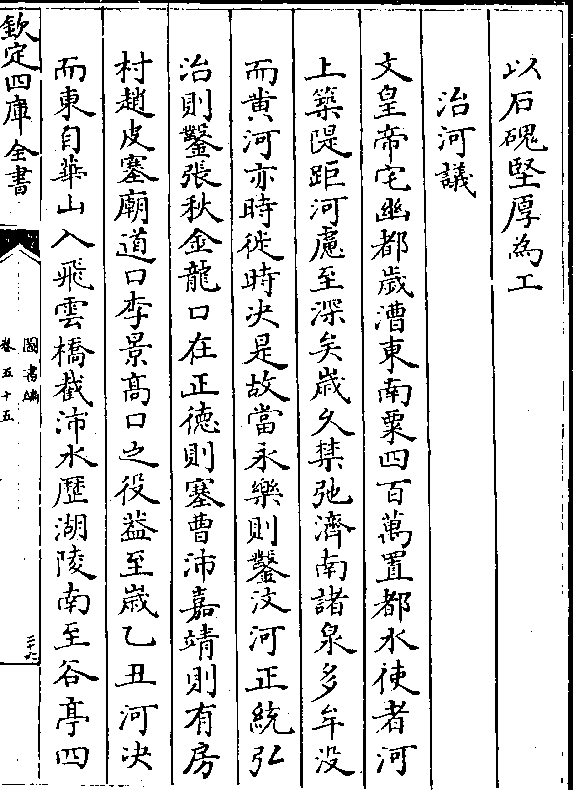 以石磈堅厚為工
治河議
文皇帝宅幽都歲漕東南粟四百萬置都水使者河
上築隄距河慮至深矣歲久禁弛濟南諸泉多牟沒
而黄河亦時徙時决是故當永樂則鑿汶河正統弘
治則鑿張秋金龍口在正德則塞曹沛嘉靖則有房
村趙皮塞廟道口李景髙口之役葢至歲乙丑河决
而東自華山入飛雲橋截沛水歷湖陵南至谷亭四
欽定四庫全書
圖書編
卷五十五
三十六